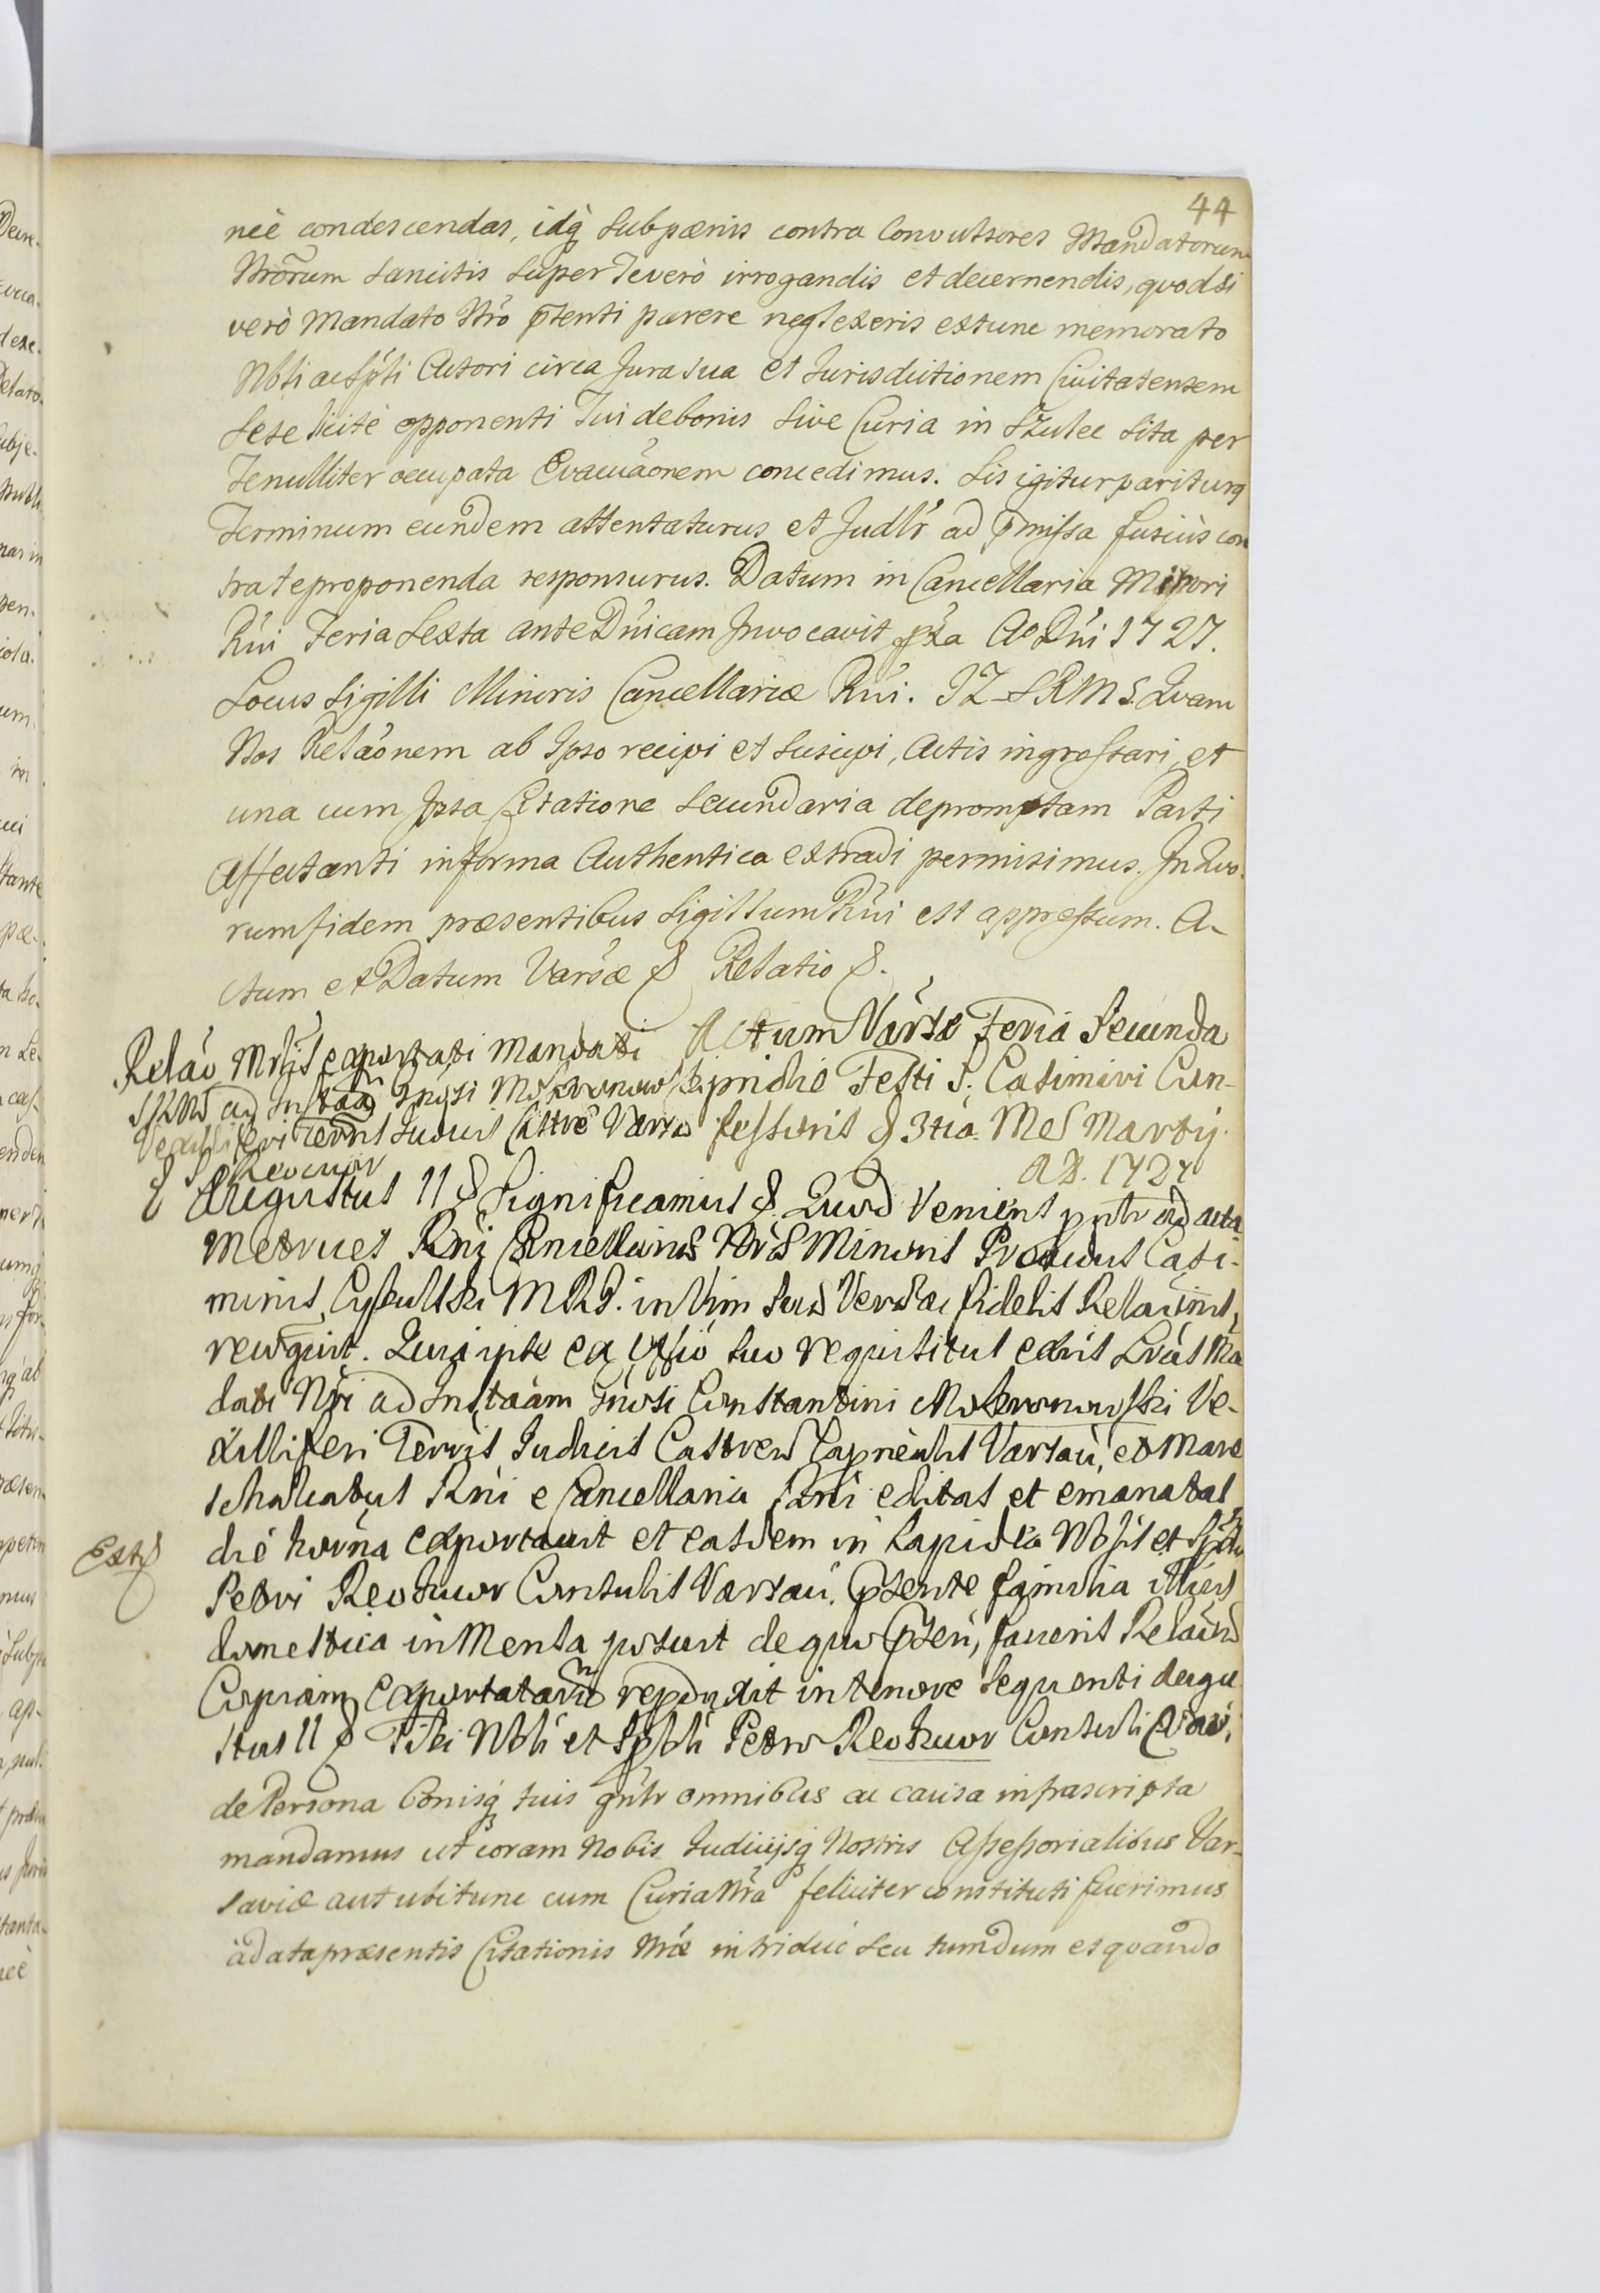 44
neè condescendas, idq subpænis contra Convulsores Mandatorum
Nrorum sancitis super Te verò irrogandis et decernendis, quodsi
verò Mandato Nro pstenti parere neglexeris extunc memorato
Nbli ac Spbli Actori circa Jura sua et Jurisdictionem Civitatensem
sese licitè opponenti Tui de bonis sive Curia in Szulec sita per
Te nulliter occupata Evacuaonem concedimus. Sis igitur pariturq
Terminum eundem attentaturus et Judlr ad pmissa fusiùs con
tra te proponenda responsurus. Datum in Cancellaria Minori
Rni Feria Sexta ante Dnicam Invocavit pxa Ao Dni 1727.
Locus Sigilli Minoris Cancellariæ Rni. IZ SRMS. Quam
Nos Relaonem ab Ipso recipi et suscipi, Actis ingrossari, et
una cum Ipsa Citatione secundaria depromptam Parti
Affectanti in forma Authentica extradi permisimus. In Quo
rum fidem præsentibus Sigillum Rni est appressum. A-
ctum et Datum Varsæ & Relatio &.
Relao Mrlis exportati Mandati
SRMs ad Instaa Gnosi Mokronowski
Vexilliferi Terris Judicis Castre Varsa
& S. Reocuor
Actum Varsæ Feria Secunda
pridie Festi S. Casimiri Con-
fessoris & 3tia Mes Martij
AD. 1727
Augustus II & Significamus & Quod Veniens pntr ad acta
Metrices Rni Cancellariæ Nræ Minoris Providus Casi-
mirus Cybulski M.R.G. in Vim suæ Veræ ac fidelis Relaonis,
recognit. Quia ipse ex Offio suo requisitus extris Lras Ma
dati Nri ad Instaam Gnosi Constantini Mokronowski Ve-
xilliferi Terris Judicis Castren Capnealis Varsav, et Mare
schalcatus Rni e Cancellaria Rni editas et emanatas
Ext&
die horna exportavit et easdem in Lapidea Nblis et Spblis
Petri Reokuor Consulis Varsav. pstente familia illius
domestica in Mensa posuit de quo psten, faciens Relaonem
Copiam exportatam reproduxit in tenore sequenti Augu
stus II & Tibi Nbli et Spbli Petro Reokuor Consuli Varsav,
de Persona Bonisq tuis gnlr omnibus ac causa infrascripta
mandamus ut coram Nobis Judicijsq Nostris Assessorialibus Var-
saviæ aut ubi tunc cum Curia Nra feliciter constituti fuerimus
à data præsentis Citationis Nræ in triduo seu tum dum et quando